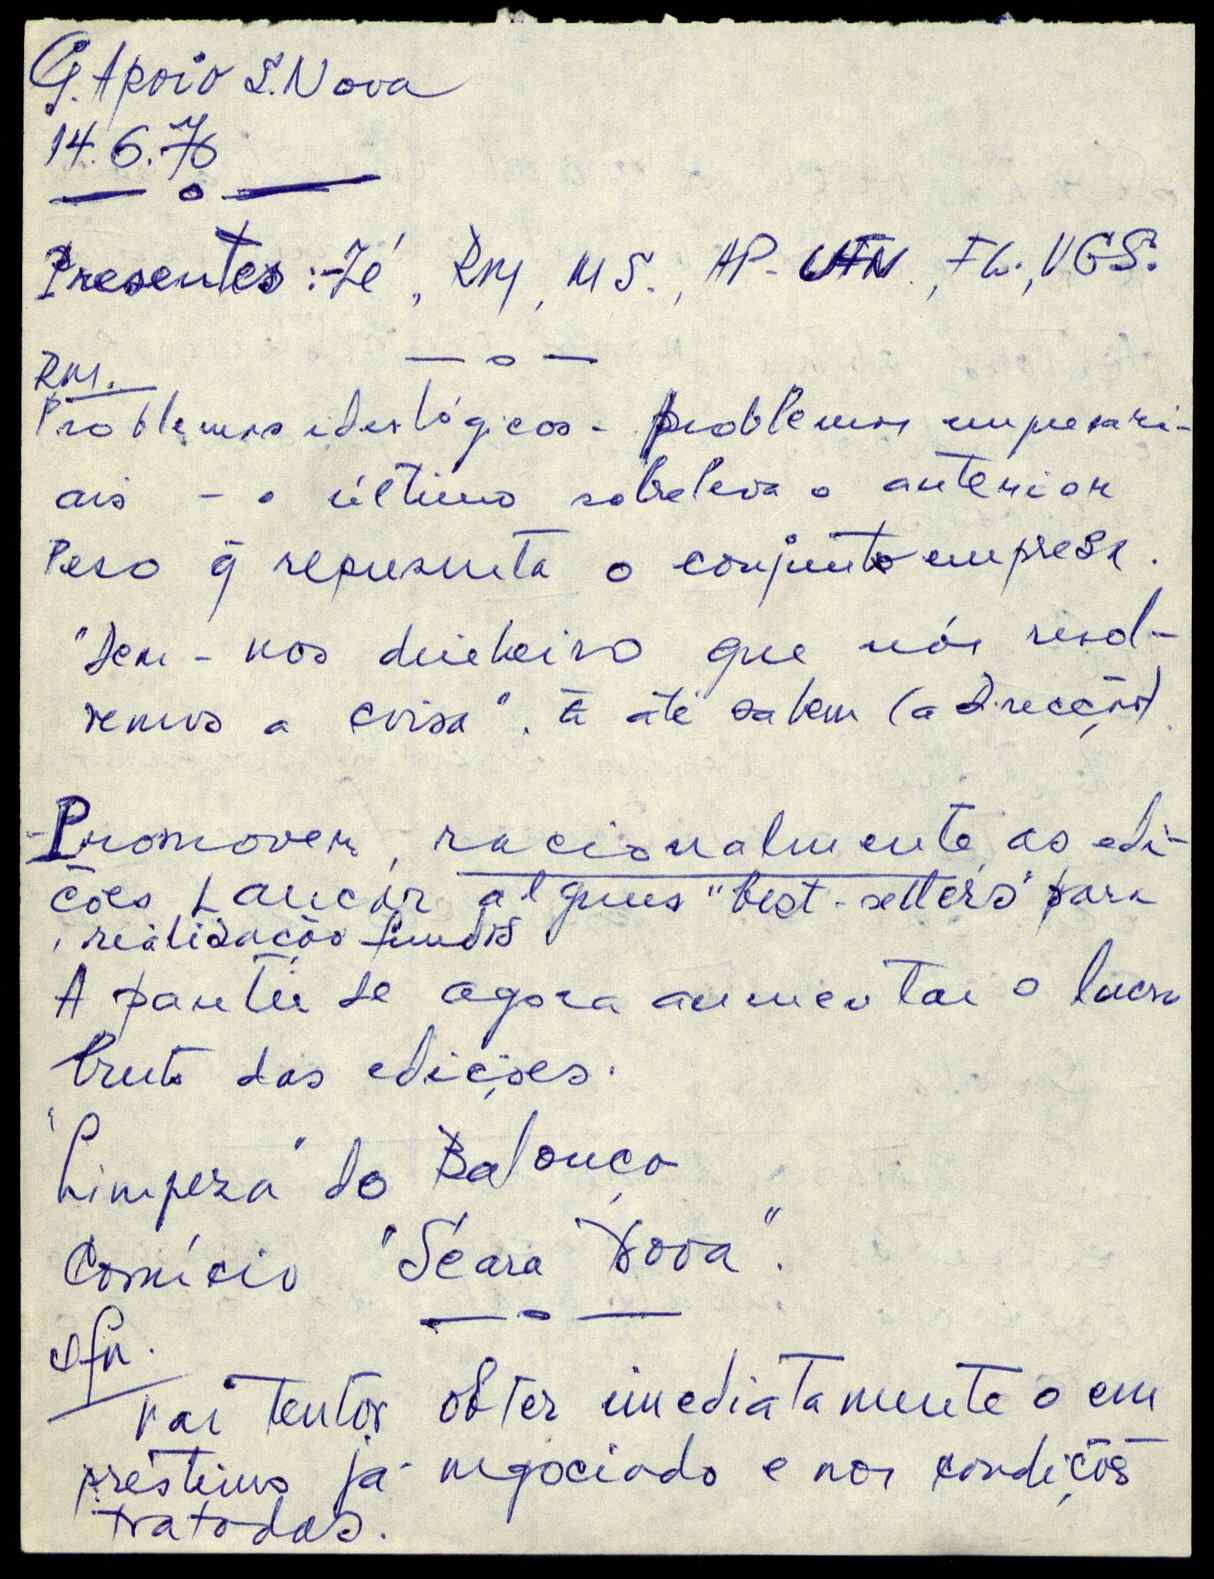 G. Apoio S. Nova
14.6.76
Presentes:-Zé, RM, MS., AP-, FL., VGS.
RM.
Problemas ideológicos - problemas empresari-
ais - o último sobreleva o anterior
Peso q̄ representa o conjunto empresa.
"Dem-nos dinheiro que nós resol-
vemos a coisa". E até sabem (a Direcção)
-Promover, racionalmente, as edi-
ções Lançar alguns "best-sellers" para
realização fundos
A partir de agora aumentar o lucro
bruto das edições.
"Limpeza" do Balanço
Comício "Seara Nova".
Vai tentar obter imediatamente o em
préstimo já negociado e nas condições
tratadas.